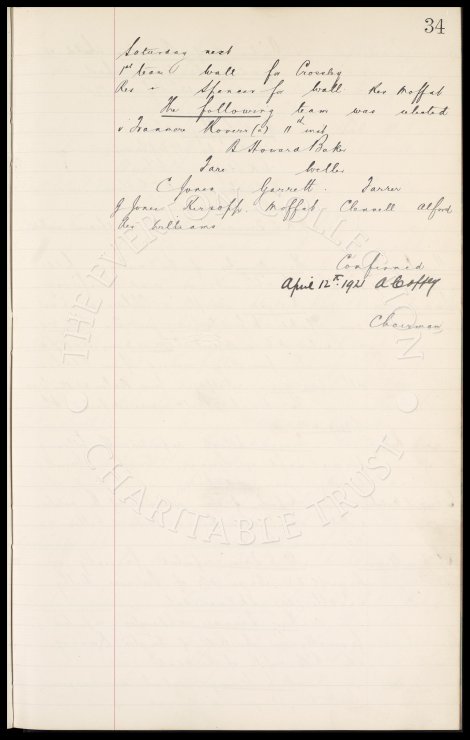 34
Saturday next
1st team Wall for Crossley
Res " Spencer for Wall Res Moffat
The following team was selected
v Tranmere Rovers (a) 11th inst
B Howard Baker
Fare Weller
C Jones Garrett. Farrer
J Jones Kirsopp. Moffat Clennell Alford
Res Williams
Confirmed
April 12th. 1921 A Coffey
Chairman
THE EVERTON COLLECTION
CHARITABLE TRUST